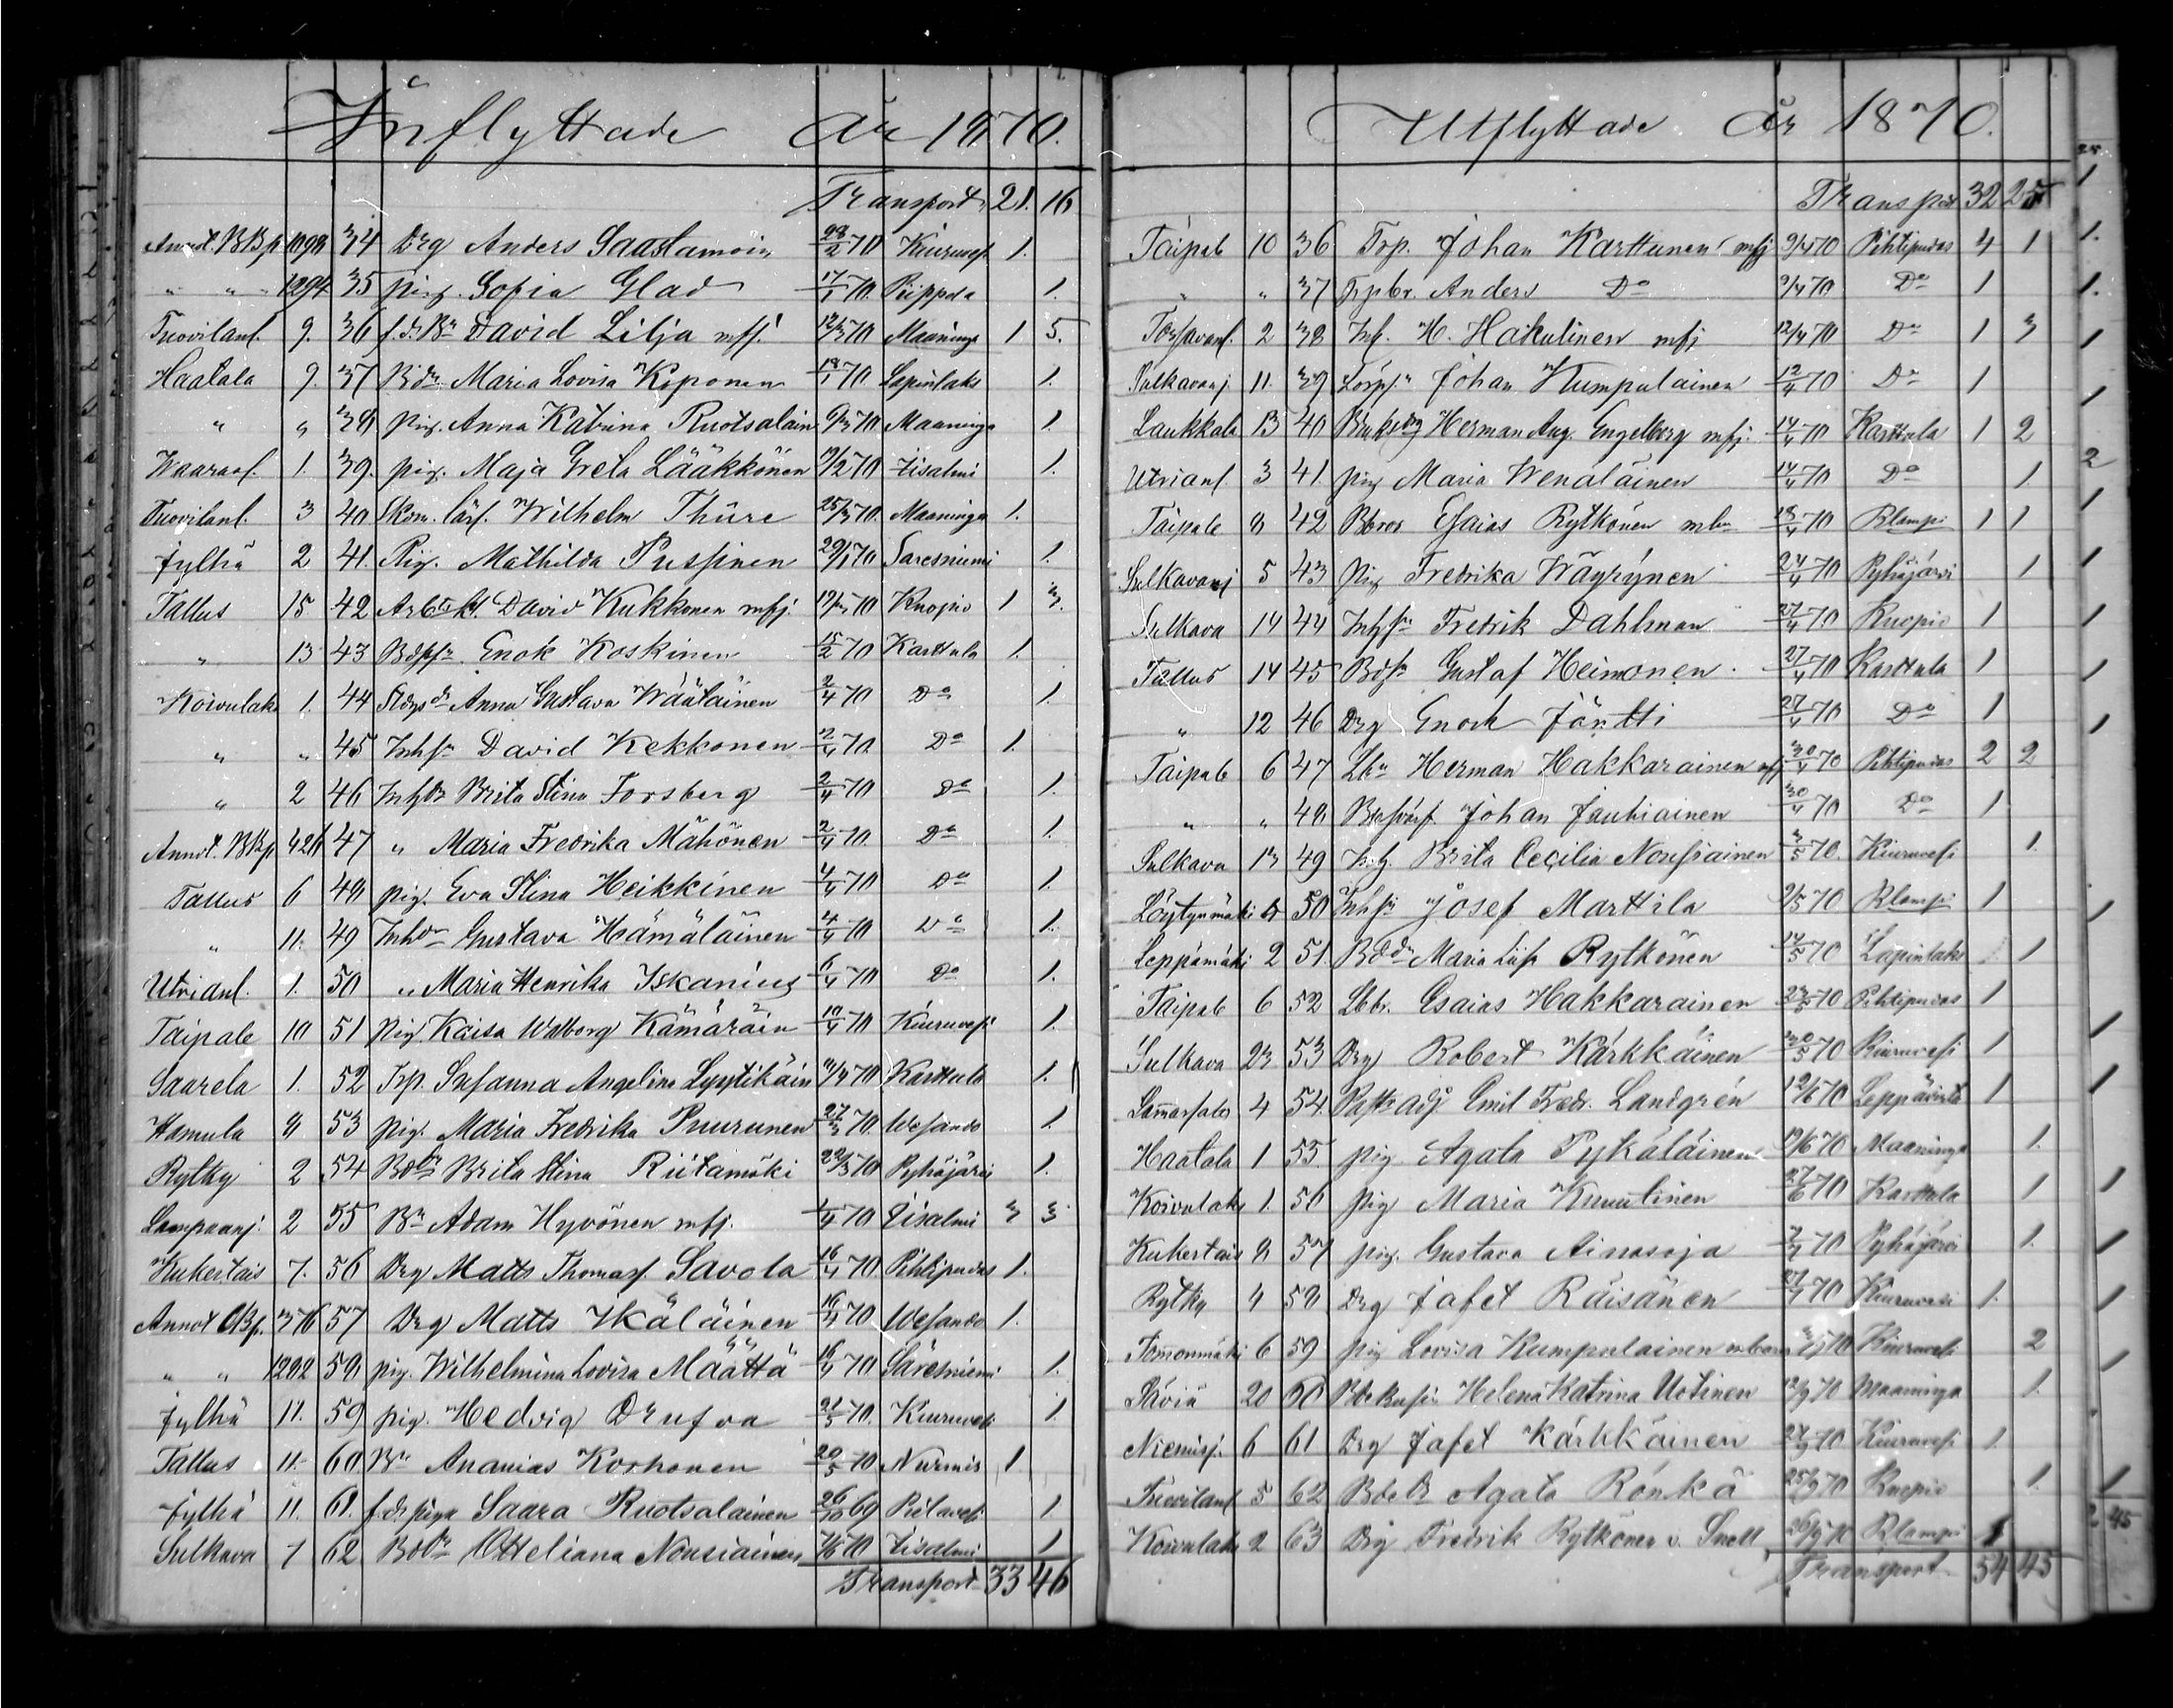 Inflyttade År 1870.
Transport 21. 16
Annot. B.Bp. 1098 34 Drg Anders Saastamoin 28/2 70 Kiuruvesi 1.
" " 1294 35 pig. Sofia Glad 17/1 70. Piippola 1.
Tuovilanl. 9. 36 f.d. Bn David Lilja mfj. 12/3 70 Maaninga 1 5.
Haatala 9. 37 Bdr Maria Lovisa Koponen 18/1 70. Lapinlaks 1.
" " 38 pig. Anna Katrina Ruotsalain 6/3 70 Maaninga 1.
Waarasl. 1. 39. pig. Maja Greta Lääkkönen 19/2 70 Iisalmi 1.
Tuovilanl. 3 40 Skom. lärl. Wilhelm Thure 25/3 70. Maaninga 1.
Jylhä 2 41. Pig. Mathilda Pussinen 29/1 70 Säresniemi 1.
Tallus 15 42 Arb.k. David Kukkonen mfj. 19/3 70 Kuopio 1 3.
" 13 43 Bdssn Enok Koskinen 15/2 70 Karttula 1.
Koivulaks 1. 44 Anna Gustava Wäätäinen 2/4 70 Do 1.
" " 45 Inhsn David Kekkonen 2/4 70. Do 1.
" 2 46 Inhdr Brita Stina Forsberg 2/4 70 Do 1.
Annot. B.Bp 426 47 " Maria Fredrika Mähönen 2/4 70. Do 1.
Tallus 6 48 pig. Eva Stina Heikkinen 4/4 70 Do 1.
" 11. 49 Inhdr Gustava Hämäläinen 4/4 70 Do 1.
Utrianl. 1. 50 " Maria Henrika Iskanius 6/4 70 Do 1.
Taipale 10 51 Pig. Kaisa Walborg Kämäräin 10/4 70 Kiuruvesi 1.
Saarela 1. 52 Trp. Susanna Angelina Lyytikäin 11/4 70 Karttula 1.
Hamula 8 53 pig. Maria Fredrika Puurunen 27/3 70. Wesando 1.
Rytky 2 54 Bddr Brita Stina Riitamäki 22/3 70 Pyhäjärvi 1.
Lampaanj. 2 55 Bn Adam Hyvönen mfj. 1/4 70 Iisalmi 3 3
Kukertais 7. 56 Drg Matts Thomass. Savola 16/4 70. Pihtipudas 1.
Annot. B.Bp. 376 57 Drg Matts Ikäläinen 16/4 70 Wesando 1.
" " 1202 58 pig. Wilhelmina Lovisa Määttä 16/4 70 Säresniemi 1.
Jylhä 11. 59 pig. Hedvig Drufva 21/5 70. Kiuruvesi 1.
Tallus 11. 60 Bn Ananias Korhonen 20/5 70 Nurmis 1
Jylhä 11. 61. f.d. piga Saara Ruotsalainen 26/10 69 Pielavesi 1.
Sulkava 7 62 Bddr Otteliana Nousiainen 7/6 70 Iisalmi 1
Transport 33 46
Utflyttade År 1870.
Transport 32 25
Taipale 10 36 Trp. Johan Karttunen mfj 9/4 70 Pihtipudas 4 1
" " 37 Trpbr. Anders Do 9/4 70 Do 1
Tossavanl. 2 38 Inh. H. Hakulinen mfj 12/4 70 Do 1 3
Sulkavanj 11. 39 Johan Kumpulainen 12/4 70 Do 1
Laukkala 13 40 Bruksdrg Herman Aug. Engelberg mfj. 14/4 70 Karttula 1 2
Utrianl 3 41. pig Maria Wenäläinen 14/4 70 Do 1.
Taipale 8 42 Esaias Rytkönen 18/4 70 Rlampi 1 1
Sulkavanj 5 43 Pig Fredrika Wäyrynen 24/4 70 Pyhäjärvi 1
Sulkava 14 44 Inhsn Fredrik Dahlman 27/4 70 Kuopio 1
Tallus 14 45 Bdsn Gustaf Heimonen 27/4 70 Karttula 1
" 12 46 Drg Enoch Jäntti 27/4 70 Do 1
Taipale 6 47 Lbn Herman Hakkarainen mfj 30/4 70 Pihtipudas 2 2
" " 48 Johan Jauhiainen 30/4 70 Do 1
Sulkava 13 49 Inh. Brita Cecilia Noussiainen 3/5 70. Kiuruvesi 1.
Löytynmäki 50 Inhsn Josef Marttila 9/5 70. Rlampi 1
Leppämäki 2 51. Bddr Maria Liisa Rytkönen 14/5 70 Lapinlaks 1
Taipale 6 52 Lbbr. Esaias Hakkarainen 23/5 70 Pihtipudas 1
Sulkava 23 53 Drg Robert Kärkkäinen 30/5 70 Kiuruvesi 1
4 54. Past. adj Emil Fredr. Landgrén 12/6 70 Leppävirta 1
Haatala 1 55. pig Agata Pykäläinen 19/6 70 Maaninga 1.
Koivulaks 1. 56 pig Maria Knuutinen 27/6 70 Karttula 1
Kukertais 8 57 pig. Gustava Ainasoja 70 Pyhäjärvi 1.
Rytky 4 58 Drg Jafet Räisänen 70 Kiuruvesi 1.
Tommonmäki 6 59 pig Lovisa Kumpulainen mbarn 70 Kiuruvesi 2
Säviä 20 60 Helena Katrina Uotinen 12/9 70 Maaninga 1.
Niemisj. 6 61 Drg Jafet Kärkkäinen 27/9 70 Kiuruvesi 1.
Tuovilanl 5 62 Bddr Agata Rönkä 25/9 70 Kuopio 1.
Koivulaks 2 63 Drg Fredrik Rytkönen v. Snell 26/9 70 Rlampi 1
Transport 54 45